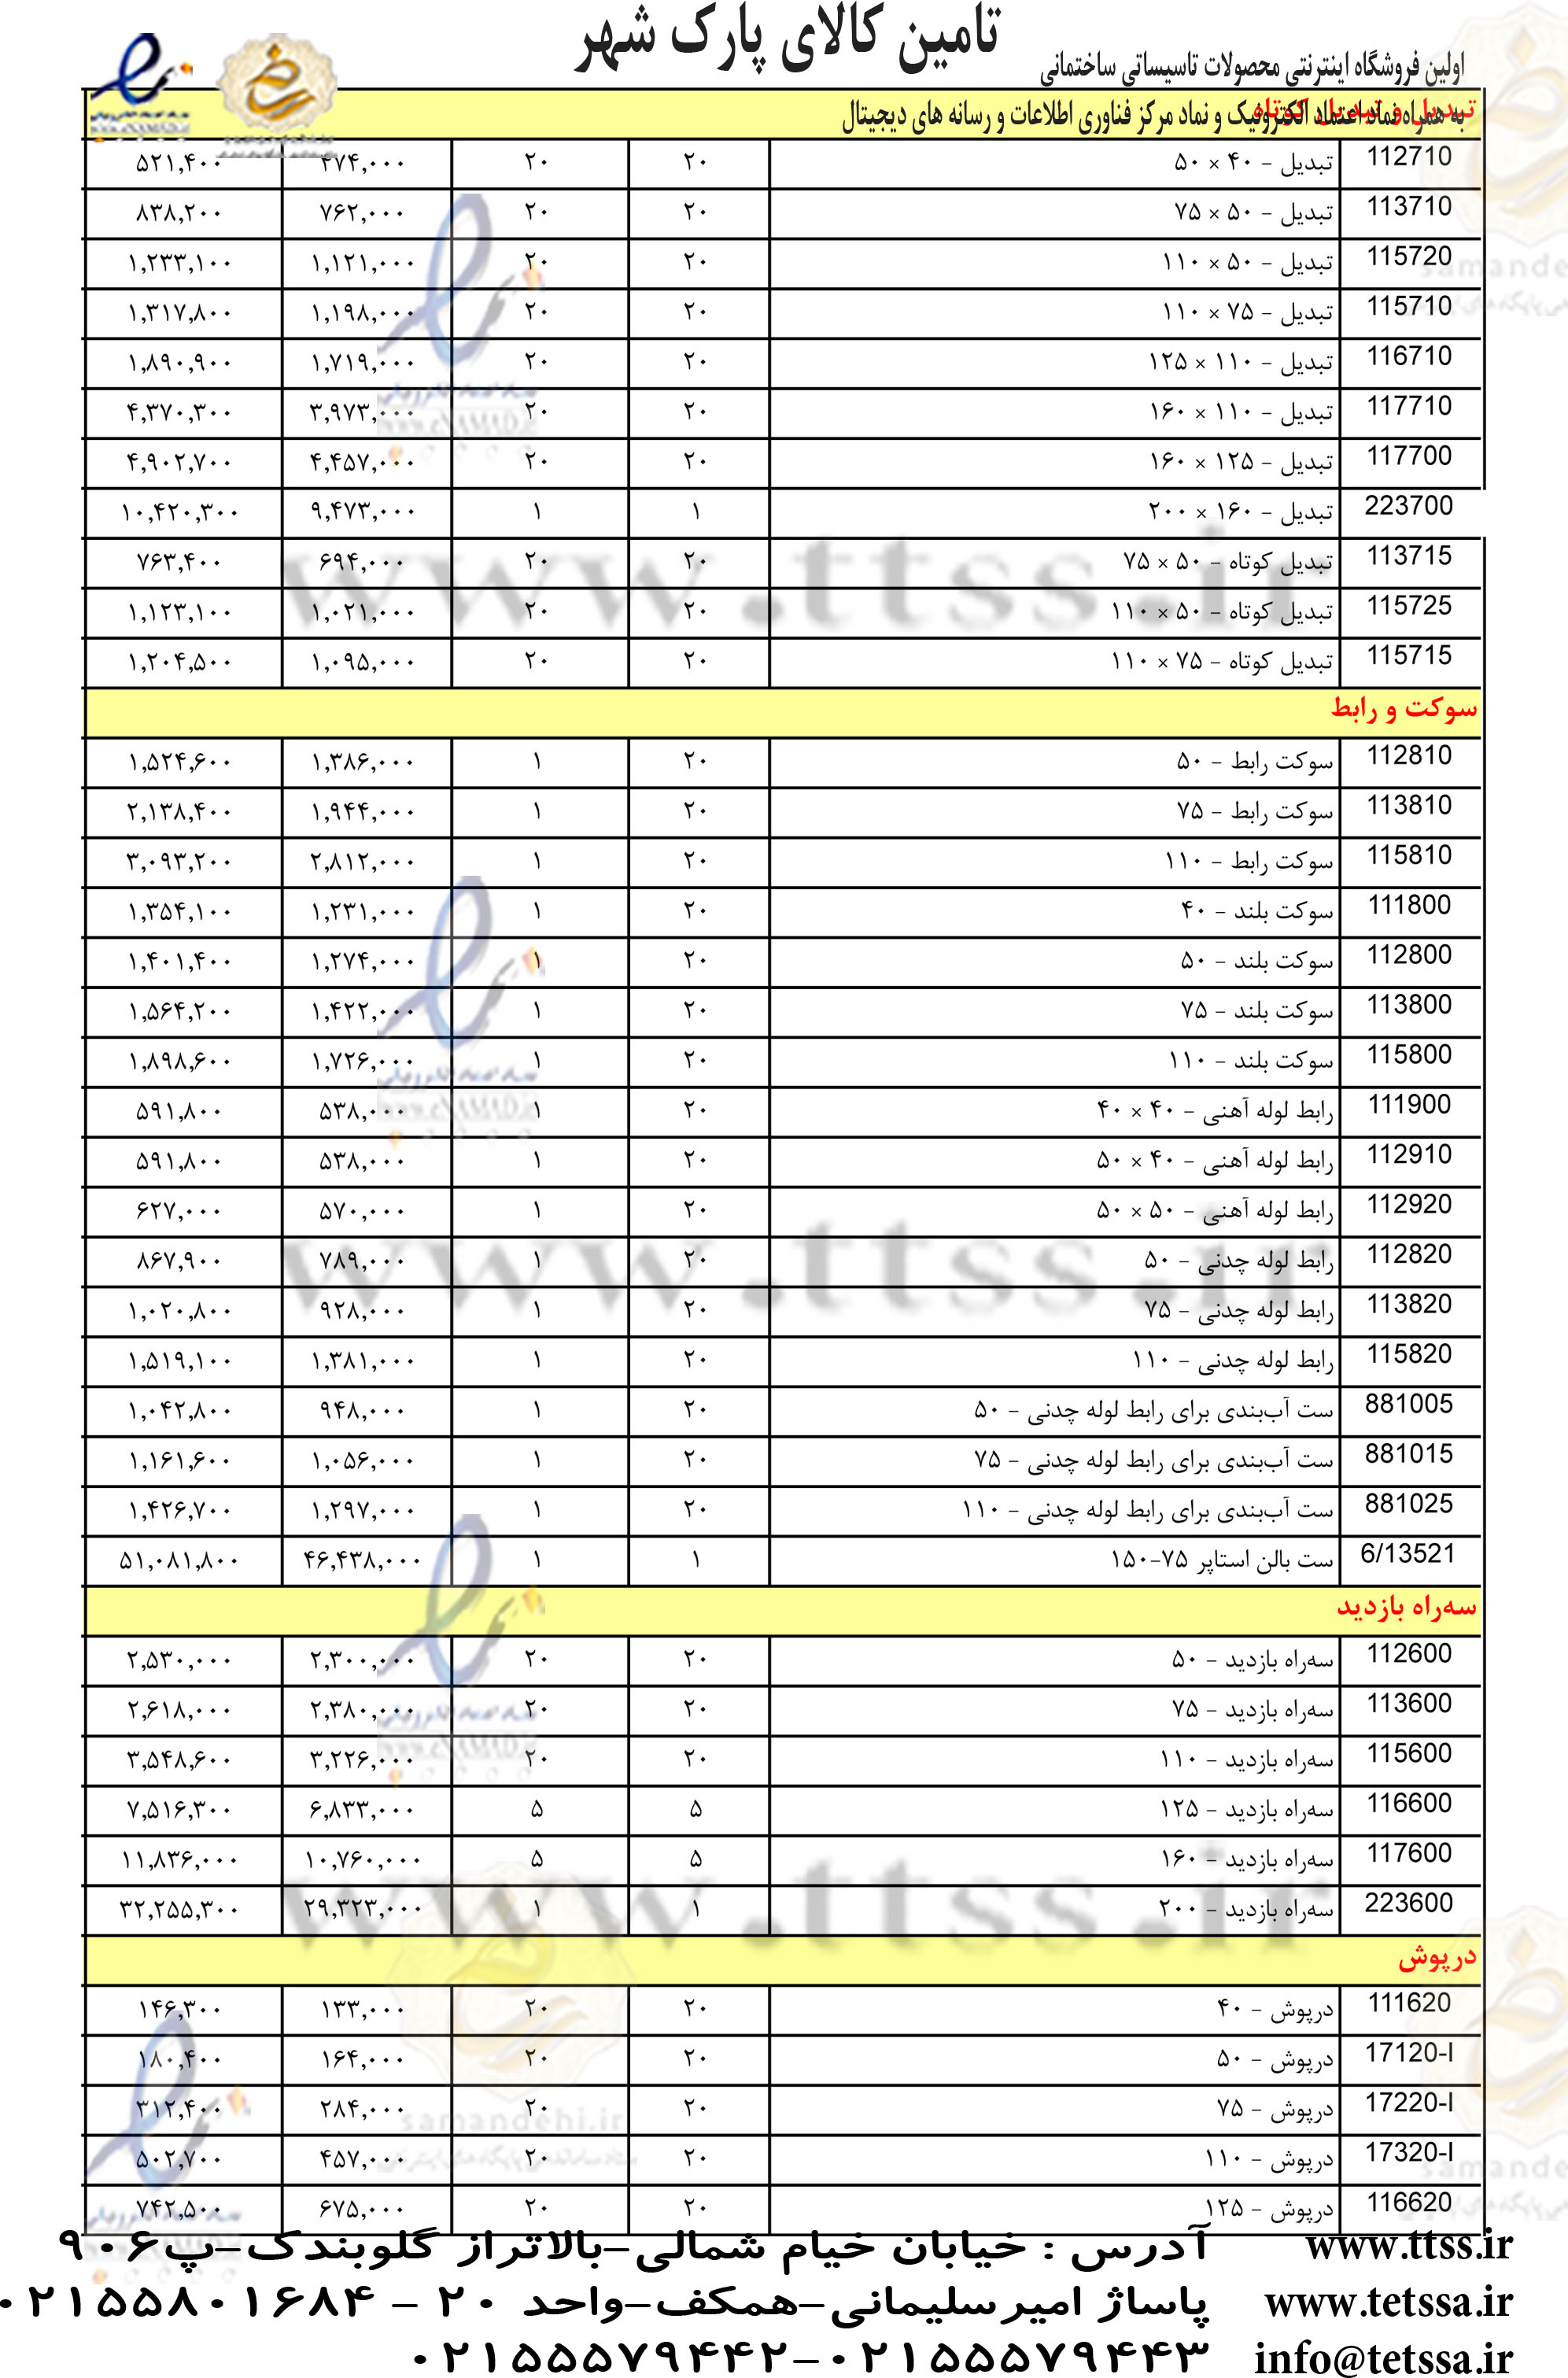 تامین کالای پارک شهر
اولین فروشگاه اینترنتی محصولات تاسیساتی ساختمانی
به همراه نماد اعتماد الکترونیک و نماد مرکز فناوری اطلاعات و رسانه های دیجیتال
تبدیل و تبدیل کوتاه
112710 تبدیل - ۴۰ × ۵۰ ۲۰ ۲۰ ۴۷۴,۰۰۰ ۵۲۱,۴۰۰
113710 تبدیل - ۵۰ × ۷۵ ۲۰ ۲۰ ۷۶۲,۰۰۰ ۸۳۸,۲۰۰
115720 تبدیل - ۵۰ × ۱۱۰ ۲۰ ۲۰ ۱,۱۲۱,۰۰۰ ۱,۲۳۳,۱۰۰
115710 تبدیل - ۷۵ × ۱۱۰ ۲۰ ۲۰ ۱,۱۹۸,۰۰۰ ۱,۳۱۷,۸۰۰
116710 تبدیل - ۱۱۰ × ۱۲۵ ۲۰ ۲۰ ۱,۷۱۹,۰۰۰ ۱,۸۹۰,۹۰۰
117710 تبدیل - ۱۱۰ × ۱۶۰ ۲۰ ۲۰ ۳,۹۷۳,۰۰۰ ۴,۳۷۰,۳۰۰
117700 تبدیل - ۱۲۵ × ۱۶۰ ۲۰ ۲۰ ۴,۴۵۷,۰۰۰ ۴,۹۰۲,۷۰۰
223700 تبدیل - ۱۶۰ × ۲۰۰ ۱ ۱ ۹,۴۷۳,۰۰۰ ۱۰,۴۲۰,۳۰۰
113715 تبدیل کوتاه - ۵۰ × ۷۵ ۲۰ ۲۰ ۶۹۴,۰۰۰ ۷۶۳,۴۰۰
115725 تبدیل کوتاه - ۵۰ × ۱۱۰ ۲۰ ۲۰ ۱,۰۲۱,۰۰۰ ۱,۱۲۳,۱۰۰
115715 تبدیل کوتاه - ۷۵ × ۱۱۰ ۲۰ ۲۰ ۱,۰۹۵,۰۰۰ ۱,۲۰۴,۵۰۰
سوکت و رابط
112810 سوکت رابط - ۵۰ ۲۰ ۱ ۱,۳۸۶,۰۰۰ ۱,۵۲۴,۶۰۰
113810 سوکت رابط - ۷۵ ۲۰ ۱ ۱,۹۴۴,۰۰۰ ۲,۱۳۸,۴۰۰
115810 سوکت رابط - ۱۱۰ ۲۰ ۱ ۲,۸۱۲,۰۰۰ ۳,۰۹۳,۲۰۰
111800 سوکت بلند - ۴۰ ۲۰ ۱ ۱,۲۳۱,۰۰۰ ۱,۳۵۴,۱۰۰
112800 سوکت بلند - ۵۰ ۲۰ ۱ ۱,۲۷۴,۰۰۰ ۱,۴۰۱,۴۰۰
113800 سوکت بلند - ۷۵ ۲۰ ۱ ۱,۴۲۲,۰۰۰ ۱,۵۶۴,۲۰۰
115800 سوکت بلند - ۱۱۰ ۲۰ ۱ ۱,۷۲۶,۰۰۰ ۱,۸۹۸,۶۰۰
111900 رابط لوله آهنی - ۴۰ × ۴۰ ۲۰ ۱ ۵۳۸,۰۰۰ ۵۹۱,۸۰۰
112910 رابط لوله آهنی - ۴۰ × ۵۰ ۲۰ ۱ ۵۳۸,۰۰۰ ۵۹۱,۸۰۰
112920 رابط لوله آهنی - ۵۰ × ۵۰ ۲۰ ۱ ۵۷۰,۰۰۰ ۶۲۷,۰۰۰
112820 رابط لوله چدنی - ۵۰ ۲۰ ۱ ۷۸۹,۰۰۰ ۸۶۷,۹۰۰
113820 رابط لوله چدنی - ۷۵ ۲۰ ۱ ۹۲۸,۰۰۰ ۱,۰۲۰,۸۰۰
115820 رابط لوله چدنی - ۱۱۰ ۲۰ ۱ ۱,۳۸۱,۰۰۰ ۱,۵۱۹,۱۰۰
881005 ست آب‌بندی برای رابط لوله چدنی - ۵۰ ۲۰ ۱ ۹۴۸,۰۰۰ ۱,۰۴۲,۸۰۰
881015 ست آب‌بندی برای رابط لوله چدنی - ۷۵ ۲۰ ۱ ۱,۰۵۶,۰۰۰ ۱,۱۶۱,۶۰۰
881025 ست آب‌بندی برای رابط لوله چدنی - ۱۱۰ ۲۰ ۱ ۱,۲۹۷,۰۰۰ ۱,۴۲۶,۷۰۰
6/13521 ست بالن استاپر ۷۵-۱۵۰ ۱ ۱ ۴۶,۴۳۸,۰۰۰ ۵۱,۰۸۱,۸۰۰
سه‌راه بازدید
112600 سه‌راه بازدید - ۵۰ ۲۰ ۲۰ ۲,۳۰۰,۰۰۰ ۲,۵۳۰,۰۰۰
113600 سه‌راه بازدید - ۷۵ ۲۰ ۲۰ ۲,۳۸۰,۰۰۰ ۲,۶۱۸,۰۰۰
115600 سه‌راه بازدید - ۱۱۰ ۲۰ ۲۰ ۳,۲۲۶,۰۰۰ ۳,۵۴۸,۶۰۰
116600 سه‌راه بازدید - ۱۲۵ ۵ ۵ ۶,۸۳۳,۰۰۰ ۷,۵۱۶,۳۰۰
117600 سه‌راه بازدید - ۱۶۰ ۵ ۵ ۱۰,۷۶۰,۰۰۰ ۱۱,۸۳۶,۰۰۰
223600 سه‌راه بازدید - ۲۰۰ ۱ ۱ ۲۹,۳۲۳,۰۰۰ ۳۲,۲۵۵,۳۰۰
درپوش
111620 درپوش - ۴۰ ۲۰ ۲۰ ۱۳۳,۰۰۰ ۱۴۶,۳۰۰
17120-I درپوش - ۵۰ ۲۰ ۲۰ ۱۶۴,۰۰۰ ۱۸۰,۴۰۰
17220-I درپوش - ۷۵ ۲۰ ۲۰ ۲۸۴,۰۰۰ ۳۱۲,۴۰۰
17320-I درپوش - ۱۱۰ ۲۰ ۲۰ ۴۵۷,۰۰۰ ۵۰۲,۷۰۰
116620 درپوش - ۱۲۵ ۲۰ ۲۰ ۶۷۵,۰۰۰ ۷۴۲,۵۰۰
www.ttss.ir
samandehi.ir
آدرس : خیابان خیام شمالی-بالاتراز گلوبندک-پ۹۰۶
پاساژ امیرسلیمانی-همکف-واحد ۲۰ - ۰۲۱۵۵۸۰۱۶۸۴
۰۲۱۵۵۵۷۹۴۴۲-۰۲۱۵۵۵۷۹۴۴۳
www.ttss.ir
www.tetssa.ir
info@tetssa.ir